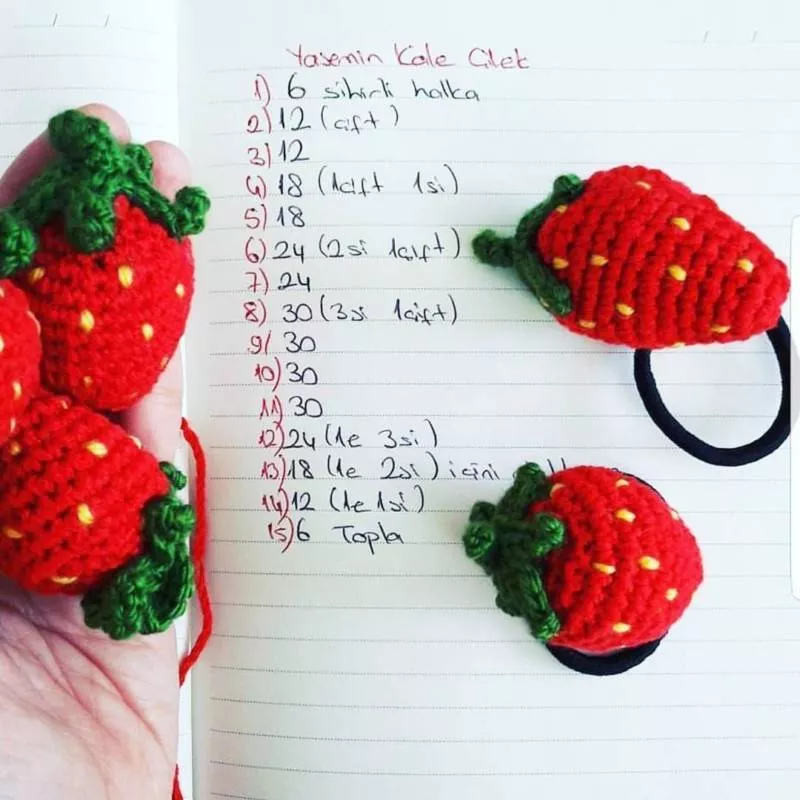 Yasemin Kale Çilek
1) 6 sihirli halka
2) 12 (çift)
3) 12
4) 18 (1çift 1si)
5) 18
6) 24 (2si 1çift)
7) 24
8) 30 (3si 1çift)
9) 30
10) 30
11) 30
12) 24 (1e 3si)
13) 18 (1e 2si) içini
14) 12 (1e 1si)
15) 6 Topla